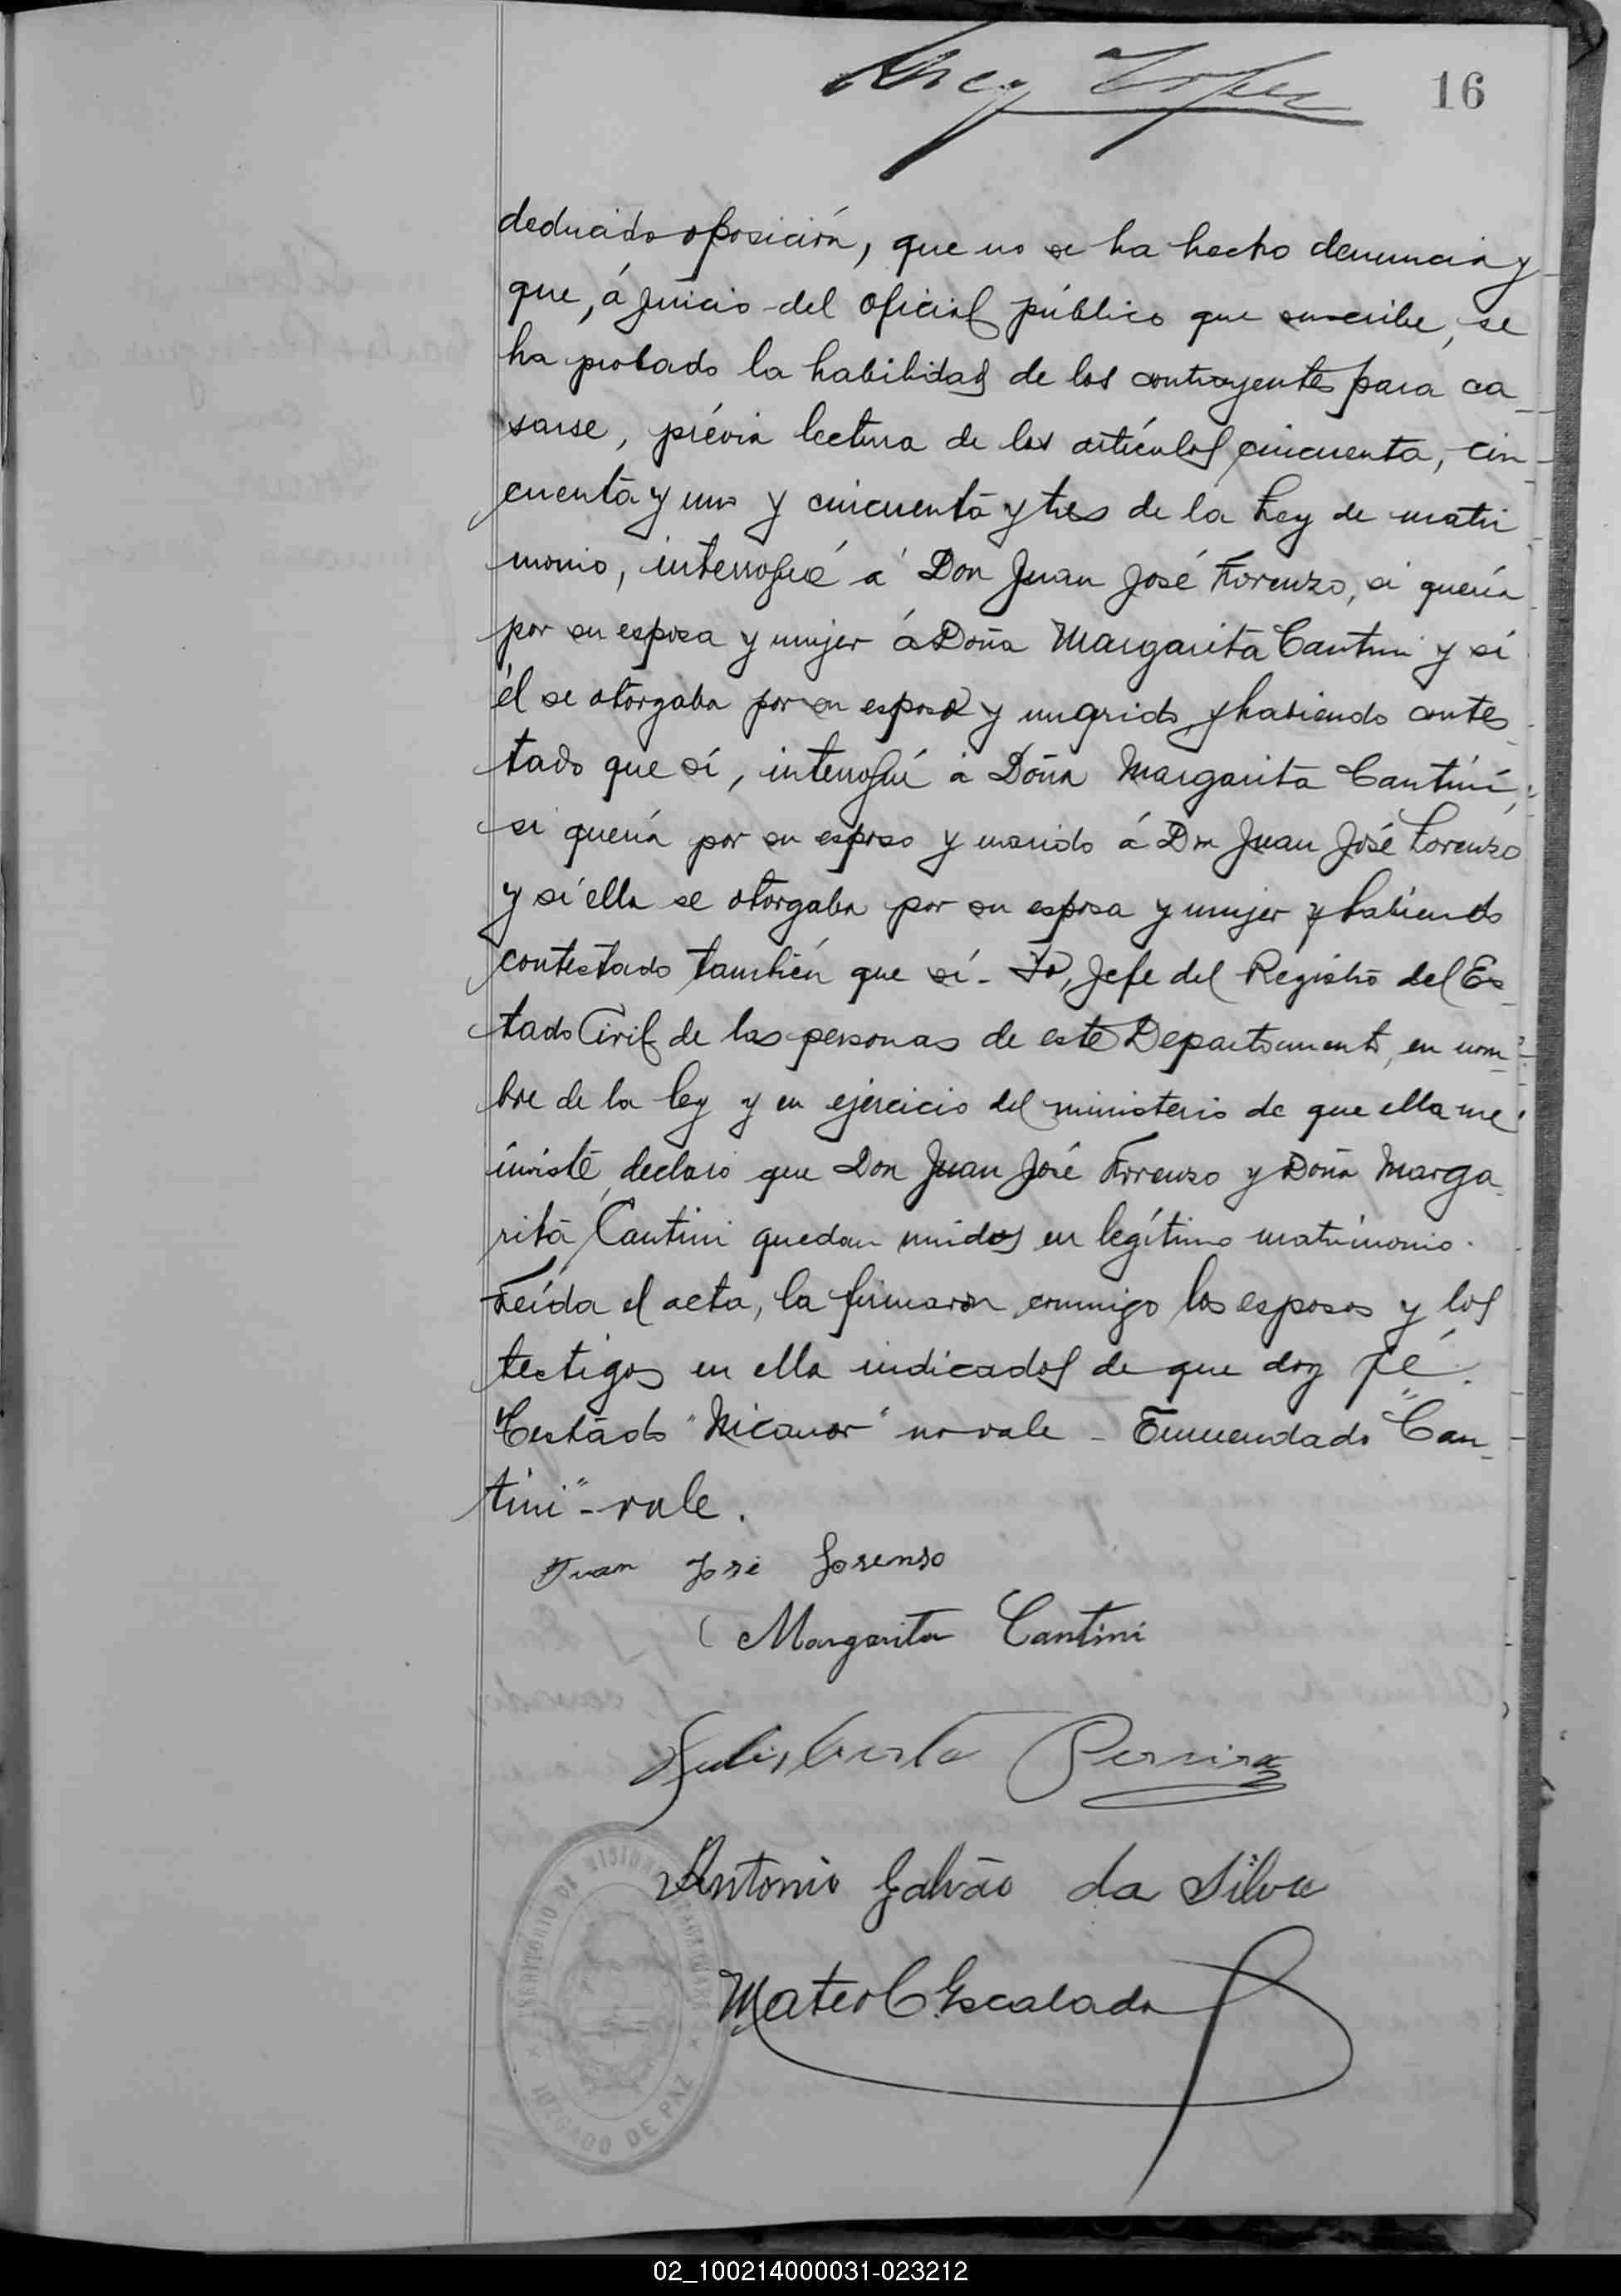 16
deducido oposición, que no se ha hecho denuncia y
que, á juicio del oficial público que suscribe, se
ha probado la habilidad de los contrayentes para ca_
sarse, prévia lectura de los artículos cincuenta, cin_
cuenta y uno y cincuenta y tres de la Ley de matri_
monio, interrogué á Don Juan José Lorenzo, si quería
por su esposa y mujer á Doña Margarita Cantini y si
él se otorgaba por su esposo y marido y habiendo contes_
tado que sí, interrogué á Doña Margarita Cantini,
si quería por su esposo y marido á Don Juan José Lorenzo
y si ella se otorgaba por su esposa y mujer y habiendo
contestado también que sí - Yo, Jefe del Registro del Es_
tado Civil de las personas de este Departamento, en nom_
bre de la ley y en ejercicio del ministerio de que ella me
inviste, declaro que Don Juan José Lorenzo y Doña Marga_
rita Cantini quedan unidos en legítimo matrimonio.
Leída el acta, la firmaron conmigo los esposos y los
testigos en ella indicados de que doy fé.
Testado "Nicanor" no vale - Enmendado "Can_
tini" - vale.
Juan José Lorenzo
Margarita Cantini
Pereira
Antonio Galvão da Silva
Mateo C Escalada
TERRITORIO DE MISIONES
JUZGADO DE PAZ
02_100214000031-023212